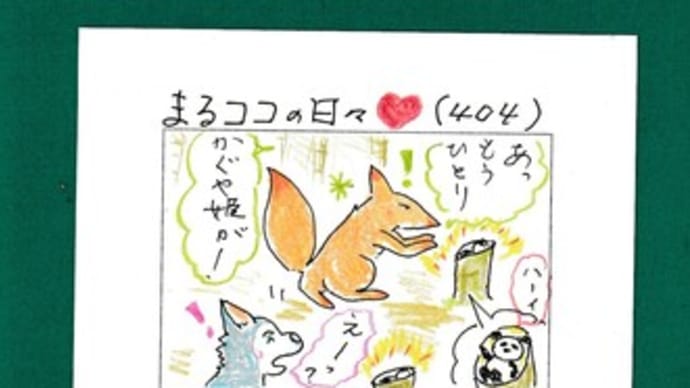 まるココの日々❤(404)
あっ
もう
ひとり
かぐや姫が!
!
ハーイ
!
えーっ
?